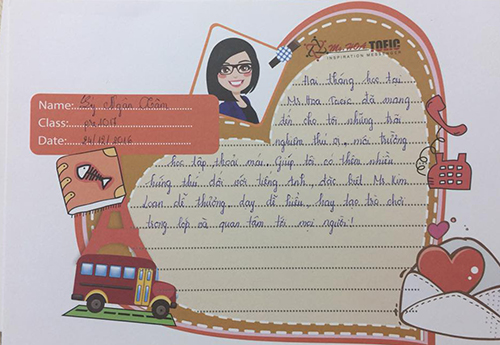 Ms. HOA TOEIC
INSPIRATION MESSENGER
Name: Lý Ngân
Class: pre 1017
Date: /12/2016
Hai tháng học tại
Ms. Hoa Toeic đã mang
tới cho tôi những trải
nghiệm thú vị, môi trường
học tập thoải mái. Giúp tôi có thêm nhiều
hứng thú đối với tiếng Anh, đặc biệt Ms. Kim
Loan dễ thương, dạy dễ hiểu, hay tạo trò chơi
trong lớp và quan tâm tới mọi người!